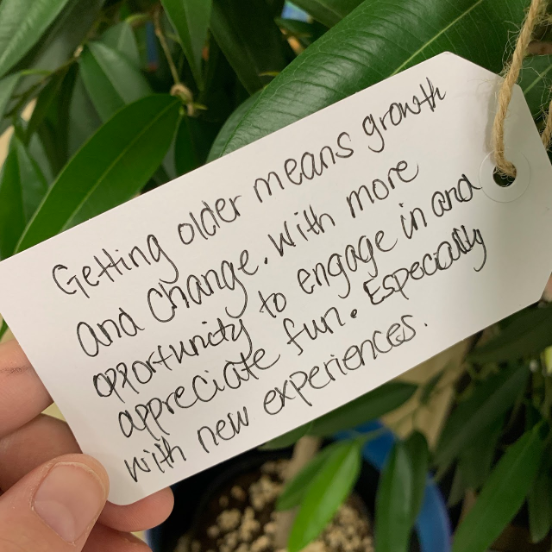 Getting older means growth
and change. With more
opportunity to engage in and
appreciate fun. Especially
with new experiences.